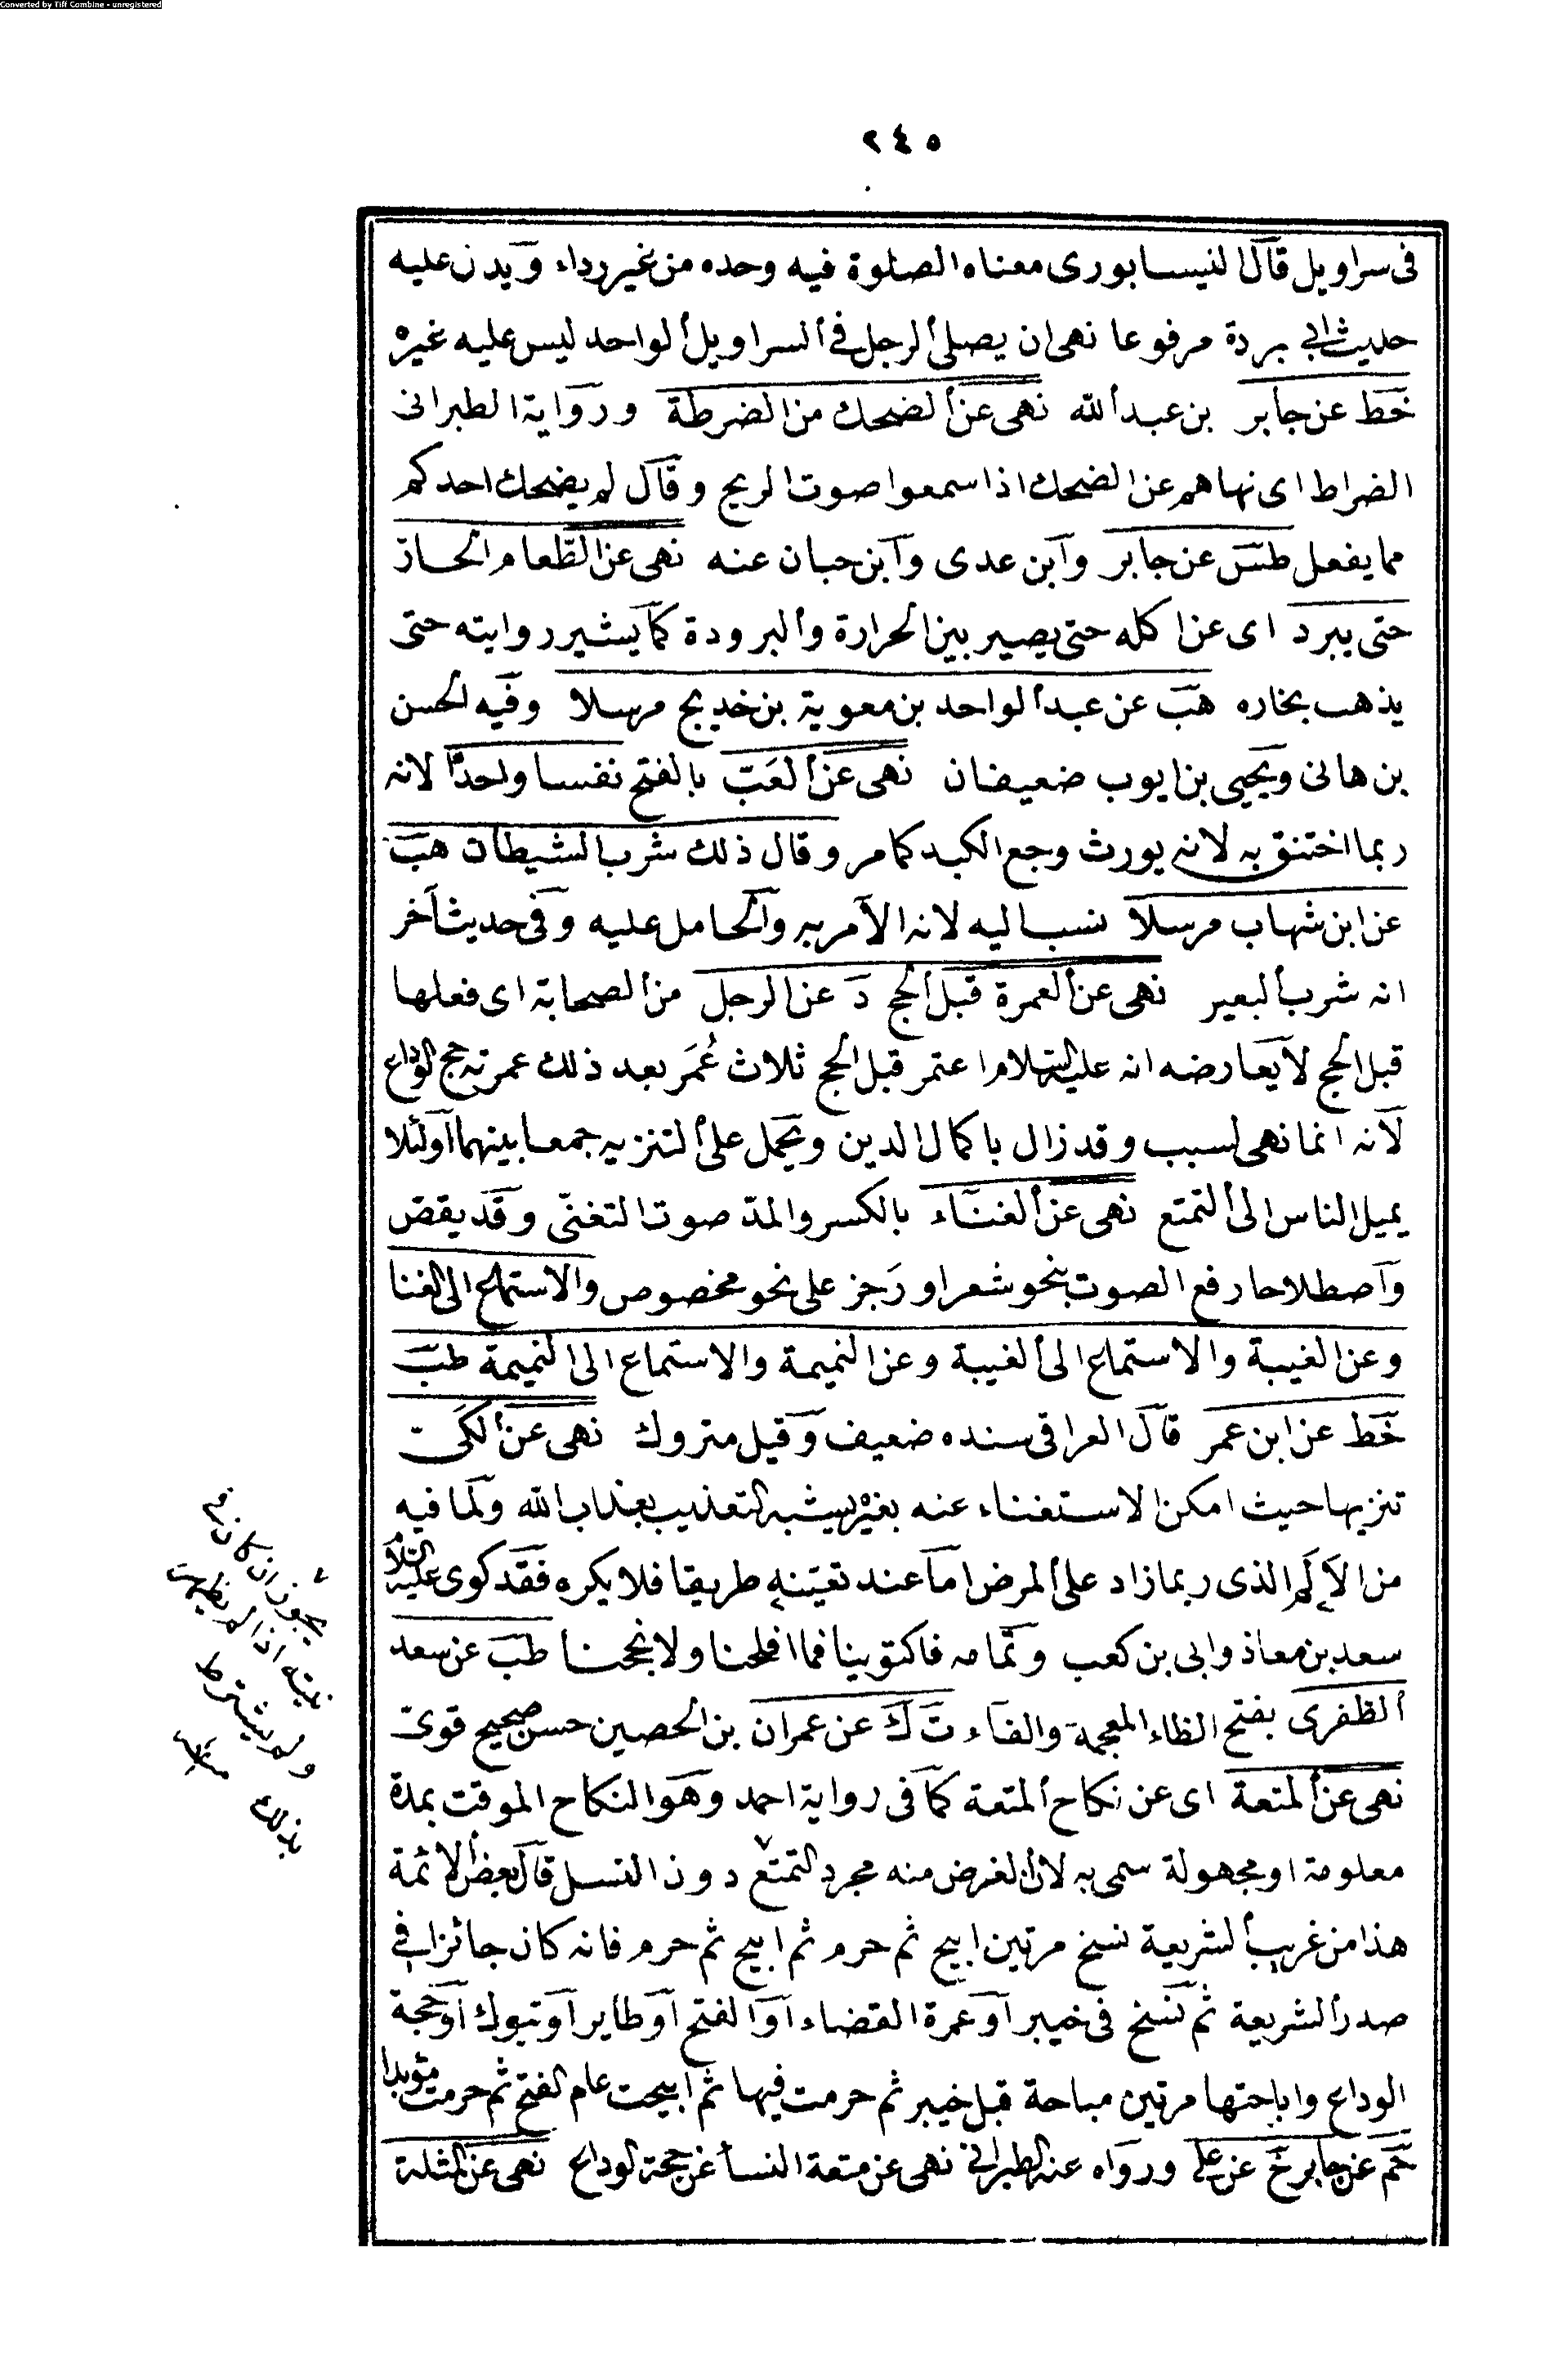 Converted by Tiff Combine - unregistered
٢٤٥
فى سراويل قال النيسابورى معناه الصلوة فيه وحده من غير رداء ويدل عليه
حديث ابى بردة مرفوعا نهى ان يصلى الرجل فى السراويل الواحد ليس عليه غيره
خط عن جابر بن عبد الله نهى عن الضحك من الضرطة ورواية الطبرانى
الضراط اى نهاهم عن الضحك اذا سمعوا صوت الريح وقال لم يضحك احدكم
مما يفعل طس عن جابر وابن عدى وابن حبان عنه نهى عن الطعام الحار
حتى يبرد اى عن اكله حتى يصير بين الحرارة والبرودة كما يشير روايته حتى
يذهب بخاره هب عن عبد الواحد بن معوية بن خديج مرسلا وفيه الحسن
بن هانى ويحيى بن ايوب ضعيفان نهى عن العَبّ بالفتح نفسا واحدًا لانه
ربما اختنق به لانه يورث وجع الكبد كما مر وقال ذلك شرب الشيطان هب
عن ابن شهاب مرسلا نسب اليه لانه الآمر به والحامل عليه وفى حديث آخر
انه شرب البعير نهى عن العمرة قبل الحج د عن الرجل من الصحابة اى فعلها
قبل الحج لا يعارضه انه عليه السلام اعتمر قبل الحج ثلاث عُمَر بعد ذلك عمرته حج الوداع
لانه انما نهى لسبب وقد زال باكمال الدين ويحمل على التنزيه جمعا بينهما اولئلا
يميل الناس الى التمتع نهى عن الغناء بالكسر والمدّ صوت التغنّى وقد يقصر
واصطلاحا رفع الصوت بنحو شعر او رَجز على نحو مخصوص والاستماع الى الغنا
وعن الغيبة والاستماع الى الغيبة وعن النميمة والاستماع الى النميمة طب
خط عن ابن عمر قال العراقى سنده ضعيف وقيل متروك نهى عن الكى
تنزيها حيث امكن الاستغناء عنه بغيره يشبه التعذيب بعذاب الله ولما فيه
من الألم الذى ربما زاد على المرض اما عند تعيّنه طريقا فلا يكره فقد كوى عليه السلام
سعد بن معاذ وابى بن كعب وتمامه فاكتوينا فما افلحنا ولا نجحنا طب عن سعد
الظفرى بفتح الظاء المعجمة والفاء ت ك عن عمران بن الحصين حسن صحيح قوى
نهى عن المتعة اى عن نكاح المتعة كما فى رواية احمد وهو النكاح الموقت بمدة
معلومة او مجهولة سمى به لان الغرض منه مجرد التمتع دون النسل قال بعض الائمة
هذا من غريب الشريعة نسخ مرتين ابيح ثم حرم ثم ابيح ثم حرم فانه كان جائزا فى
صدر الشريعة ثم نسخ فى خيبر او عمرة القضاء او الفتح او طاير او تبوك او حجة
الوداع واباحتها مرتين مباحة قبل خيبر ثم حرمت فيها ثم ابيحت عام الفتح ثم حرمت مؤبدا
حم عن جابر خ عن على ورواه عنه الطبرانى نهى عن متعة النسأ عن حجة الوداع نهى عن المثلة
يجوز ان كان فى
نيته اذا لم
ولم يشترط
بذلك